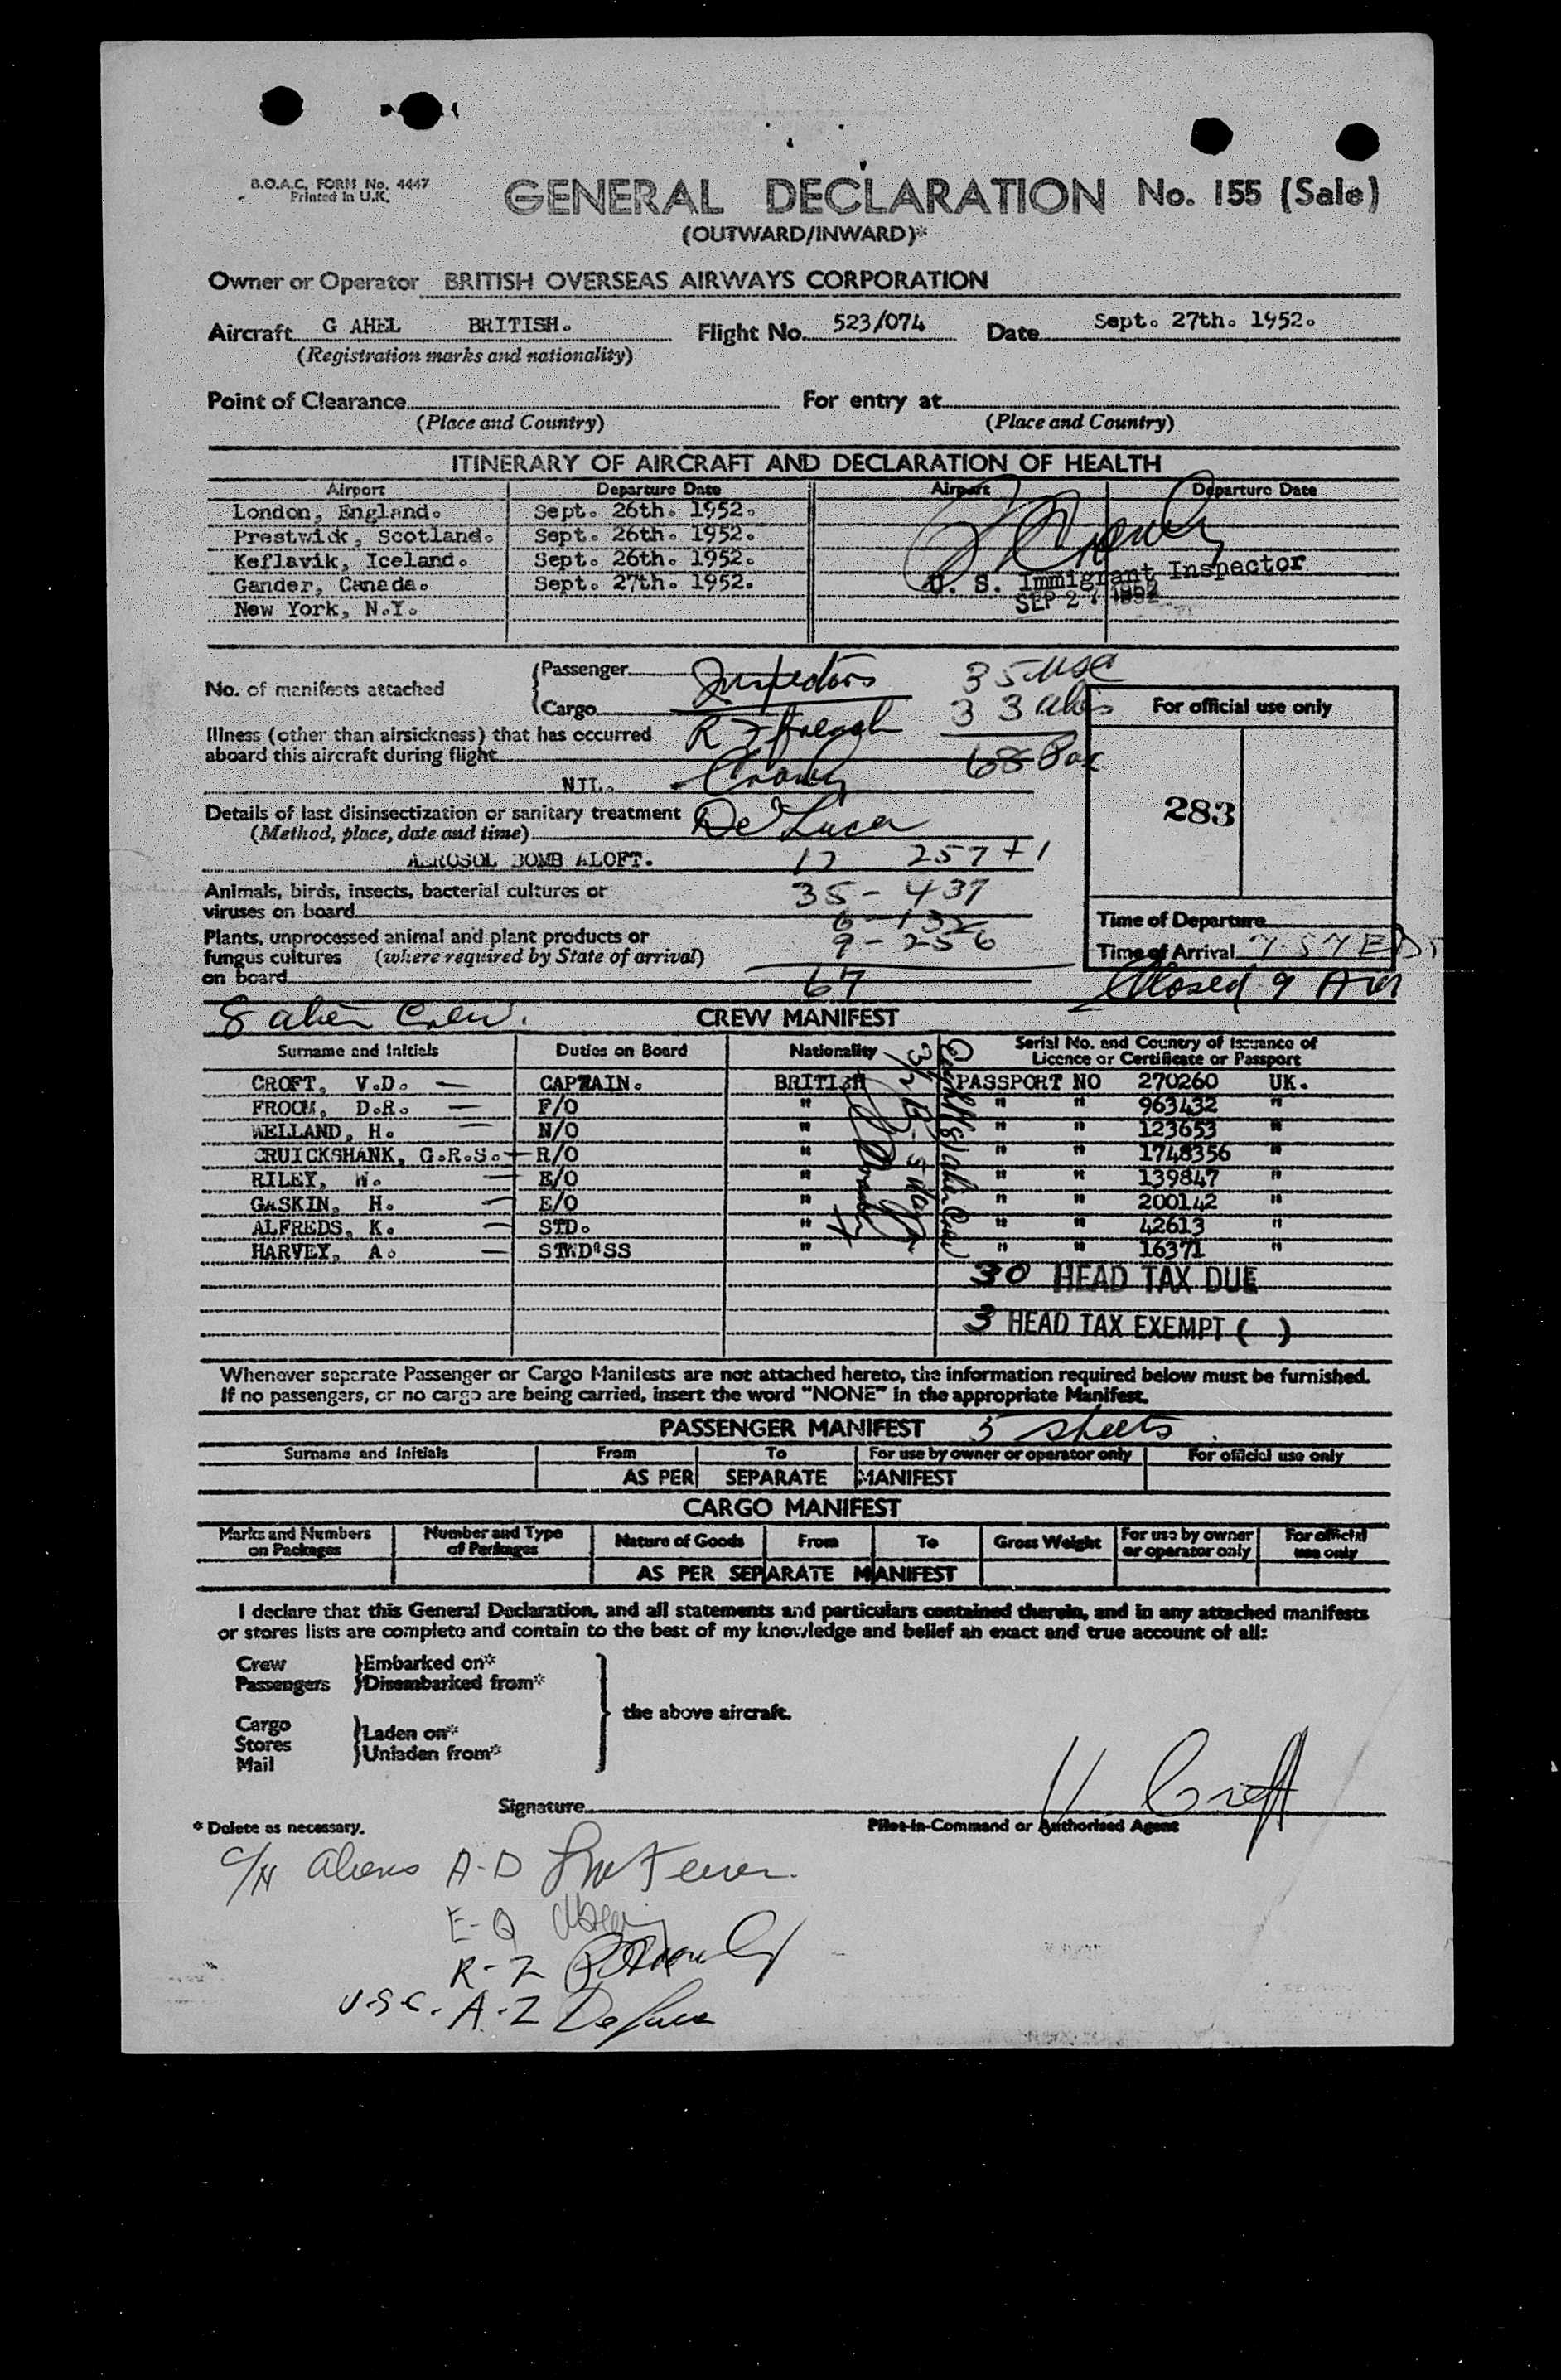 B.O.A.C. FORM No. 4447
Printed in U.K.
GENERAL DECLARATION No. 155 (Sale)
(OUTWARD/INWARD)*
Owner or Operator BRITISH OVERSEAS AIRWAYS CORPORATION
Aircraft G AHEL BRITISH. Flight No. 523/074 Date Sept. 27th. 1952.
(Registration marks and nationality)
Point of Clearance For entry at
(Place and Country) (Place and Country)
ITINERARY OF AIRCRAFT AND DECLARATION OF HEALTH
Airport Departure Date Airport Departure Date
London, England. Sept. 26th. 1952.
Prestwick, Scotland. Sept. 26th. 1952.
Keflavik, Iceland. Sept. 26th. 1952.
Gander, Canada. Sept. 27th. 1952. U. S. Immigrant Inspector
New York, N.Y. SEP 27 1952
No. of manifests attached
Passenger Inspectors 35 USA
Cargo 33 
Illness (other than airsickness) that has occurred
aboard this aircraft during flight 68 Pax
NIL.
Details of last disinsectization or sanitary treatment De Luca
(Method, place, date and time)
AEROSOL BOMB ALOFT. 17 257 + 1
Animals, birds, insects, bacterial cultures or 35 - 437
viruses on board 6 - 132
Plants, unprocessed animal and plant products or 9 - 256
fungus cultures (where required by State of arrival)
on board 67
For official use only
283
Time of Departure
Time of Arrival
Closed 9 AM
8 alien Crew.
CREW MANIFEST
Surname and Initials Duties on Board Nationality Serial No. and Country of Issuance of
Licence or Certificate or Passport
CROFT, V.D. — CAPTAIN. BRITISH PASSPORT NO 270260 UK.
FROOM, D.R. — F/O " " " 963432 "
WELLAND, H. — N/O " " " 123653 "
CRUICKSHANK, G.R.S. — R/O " " " 1748356 "
RILEY, W. — E/O " " " 139847 "
GASKIN, H. — E/O " " " 200142 "
ALFREDS, K. — STD. " " " 42613 "
HARVEY, A. — STWD'SS " " " 16371 "
30 HEAD TAX DUE
3 HEAD TAX EXEMPT ( )
Whenever separate Passenger or Cargo Manifests are not attached hereto, the information required below must be furnished.
If no passengers, or no cargo are being carried, insert the word "NONE" in the appropriate Manifest.
PASSENGER MANIFEST 5 sheets
Surname and Initials From To For use by owner or operator only For official use only
AS PER SEPARATE MANIFEST
CARGO MANIFEST
Marks and Numbers on Packages Number and Type of Packages Nature of Goods From To Gross Weight For use by owner or operator only For official use only
AS PER SEPARATE MANIFEST
I declare that this General Declaration, and all statements and particulars contained therein, and in any attached manifests
or stores lists are complete and contain to the best of my knowledge and belief an exact and true account of all:
Crew Embarked on*
Passengers Disembarked from*
the above aircraft.
Cargo
Stores Laden on*
Mail Unladen from*
Signature V. Croft
* Delete as necessary. Pilot-in-Command or Authorised Agent
C/N aliens A-D
E-Q
R-Z
U.S.C. A-Z De Luca